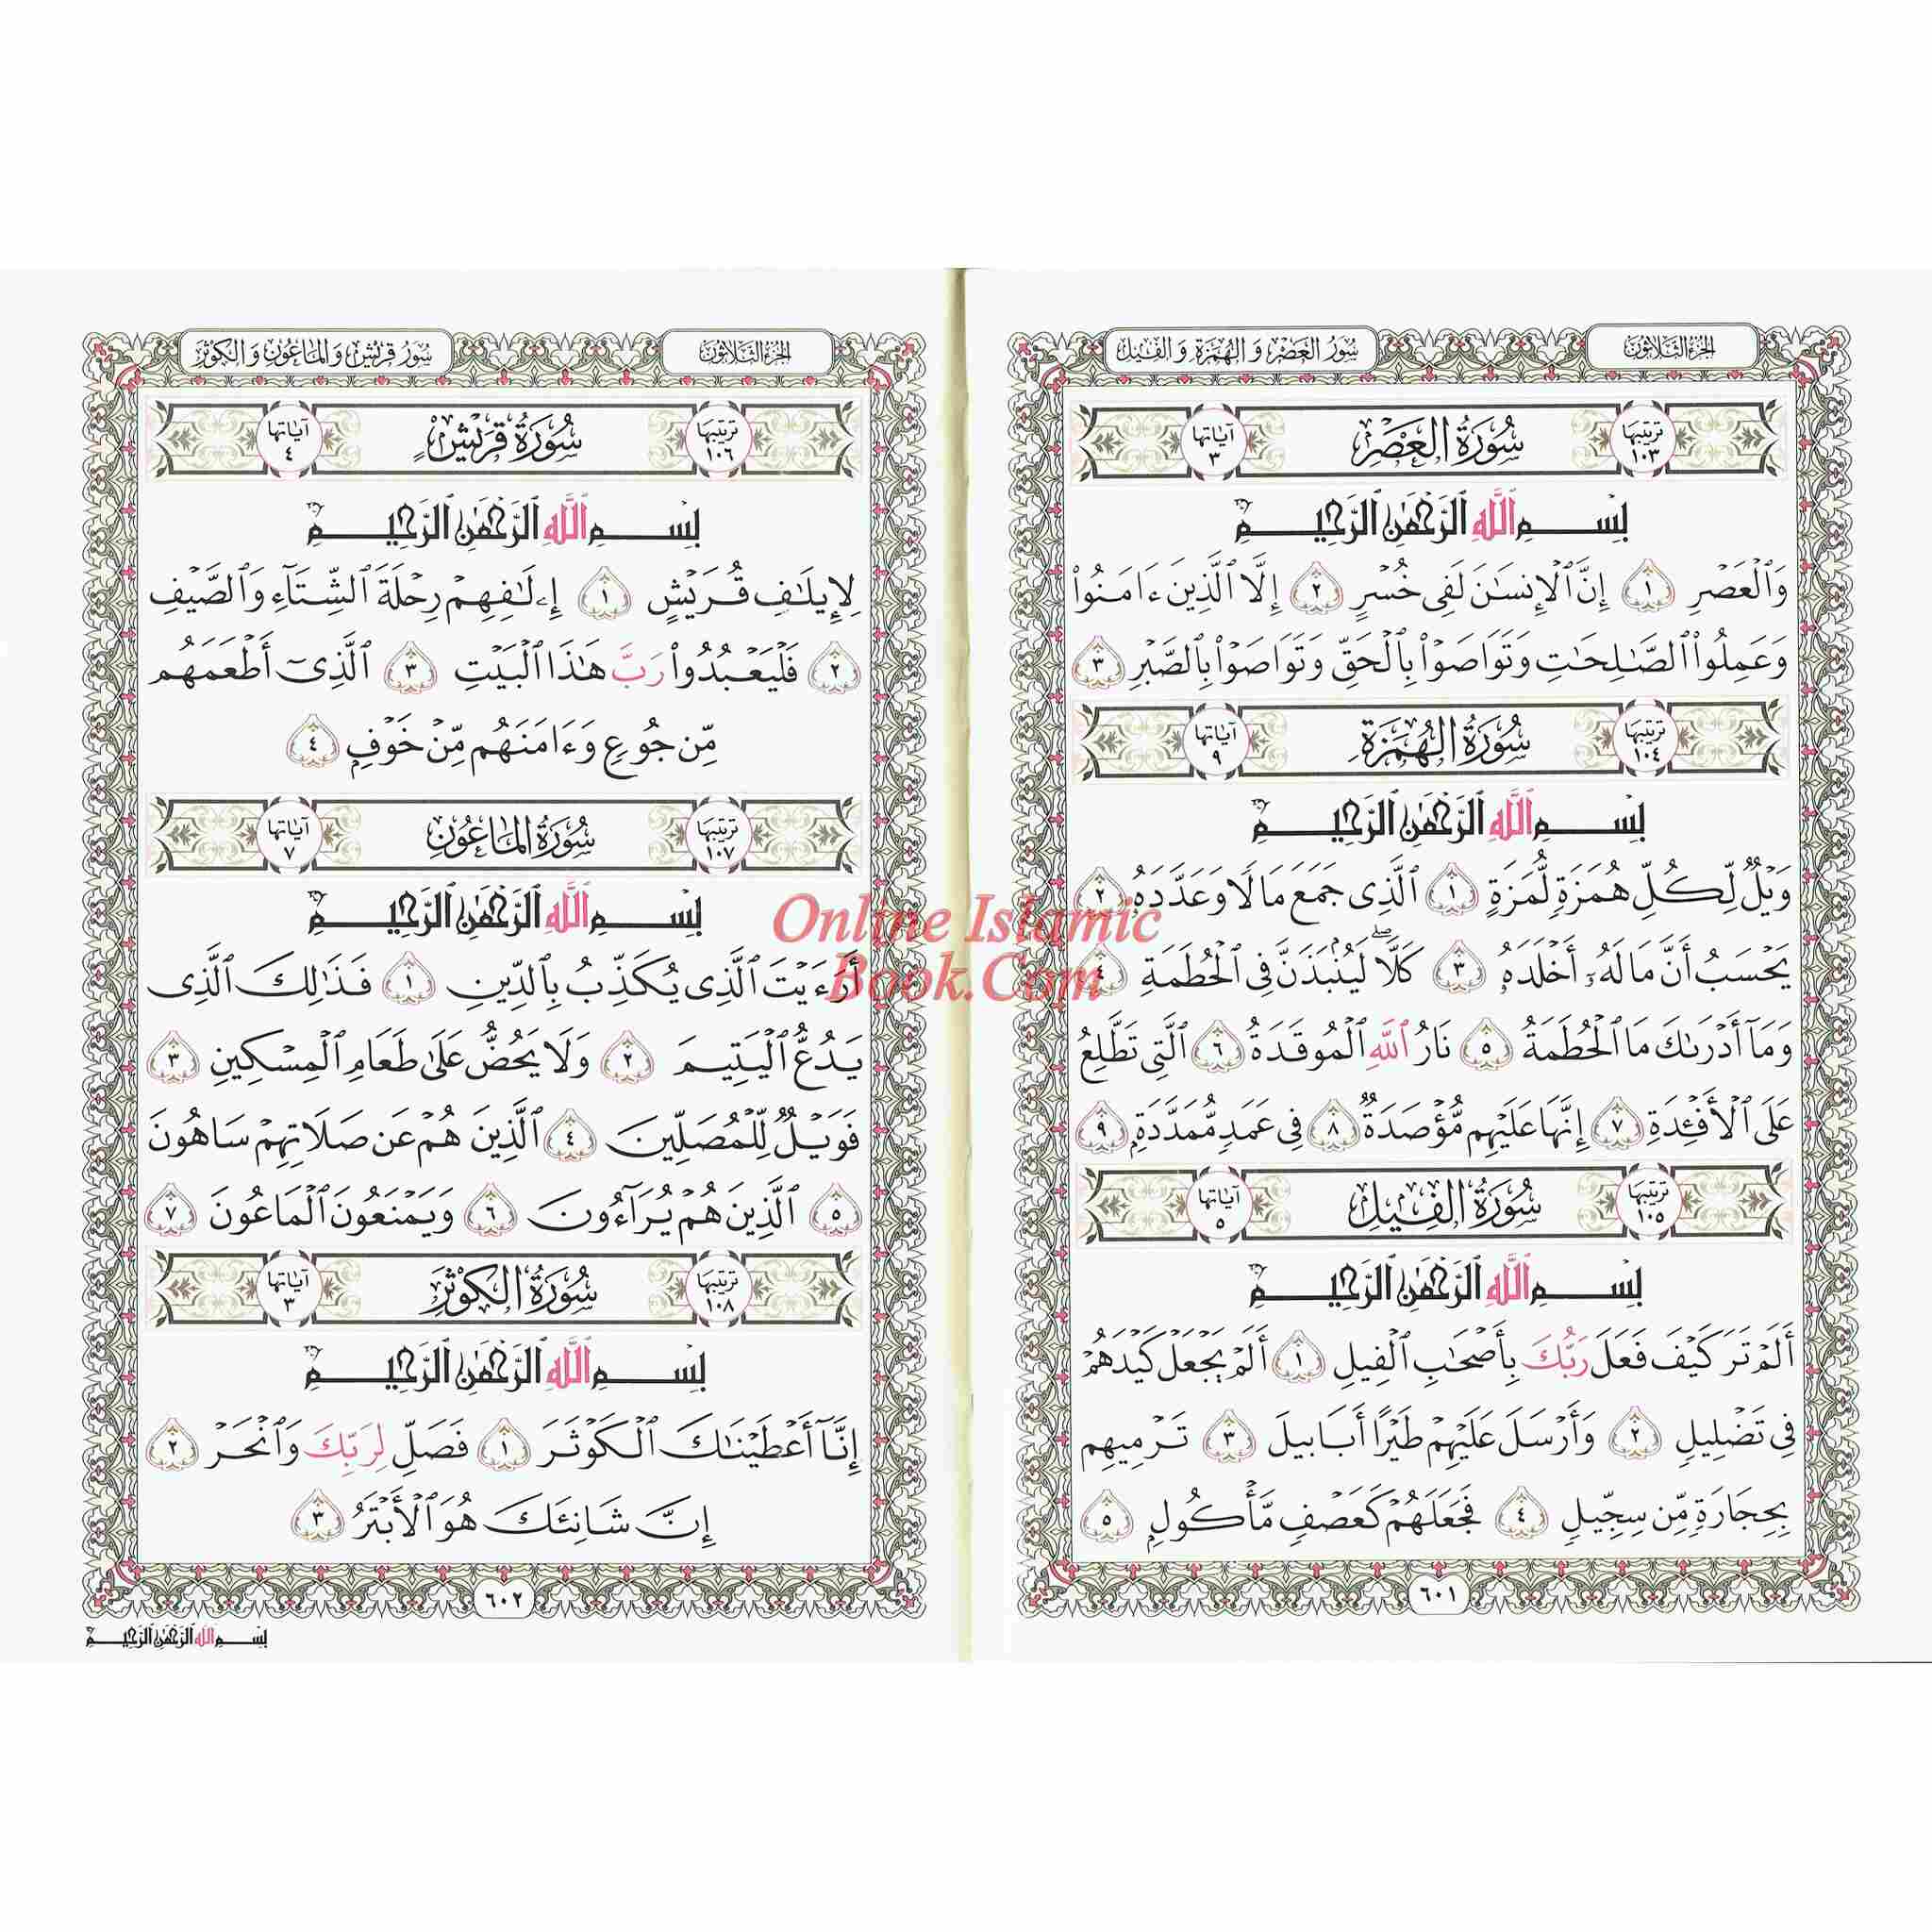 الجزء الثلاثون
سور العصر و الهمزة و الفيل
ترتيبها ١٠٣
سُورَةُ العَصْرِ
آياتها ٣
بِسْمِ اللَّهِ الرَّحْمَٰنِ الرَّحِيمِ
وَٱلْعَصْرِ ١ إِنَّ ٱلْإِنسَٰنَ لَفِى خُسْرٍ ٢ إِلَّا ٱلَّذِينَ ءَامَنُوا۟
وَعَمِلُوا۟ ٱلصَّٰلِحَٰتِ وَتَوَاصَوْا۟ بِٱلْحَقِّ وَتَوَاصَوْا۟ بِٱلصَّبْرِ ٣
ترتيبها ١٠٤
سُورَةُ الهُمَزَةِ
آياتها ٩
بِسْمِ اللَّهِ الرَّحْمَٰنِ الرَّحِيمِ
وَيْلٌ لِّكُلِّ هُمَزَةٍ لُّمَزَةٍ ١ ٱلَّذِى جَمَعَ مَالًا وَعَدَّدَهُۥ ٢
يَحْسَبُ أَنَّ مَالَهُۥٓ أَخْلَدَهُۥ ٣ كَلَّا ۖ لَيُنۢبَذَنَّ فِى ٱلْحُطَمَةِ ٤
وَمَآ أَدْرَىٰكَ مَا ٱلْحُطَمَةُ ٥ نَارُ ٱللَّهِ ٱلْمُوقَدَةُ ٦ ٱلَّتِى تَطَّلِعُ
عَلَى ٱلْأَفْـِٔدَةِ ٧ إِنَّهَا عَلَيْهِم مُّؤْصَدَةٌ ٨ فِى عَمَدٍ مُّمَدَّدَةٍۭ ٩
ترتيبها ١٠٥
سُورَةُ الفِيلِ
آياتها ٥
بِسْمِ اللَّهِ الرَّحْمَٰنِ الرَّحِيمِ
أَلَمْ تَرَ كَيْفَ فَعَلَ رَبُّكَ بِأَصْحَٰبِ ٱلْفِيلِ ١ أَلَمْ يَجْعَلْ كَيْدَهُمْ
فِى تَضْلِيلٍ ٢ وَأَرْسَلَ عَلَيْهِمْ طَيْرًا أَبَابِيلَ ٣ تَرْمِيهِم
بِحِجَارَةٍ مِّن سِجِّيلٍ ٤ فَجَعَلَهُمْ كَعَصْفٍ مَّأْكُولٍۭ ٥
٦٠١
الجزء الثلاثون
سور قريش والماعون و الكوثر
ترتيبها ١٠٦
سُورَةُ قُرَيْشٍ
آياتها ٤
بِسْمِ اللَّهِ الرَّحْمَٰنِ الرَّحِيمِ
لِإِيلَٰفِ قُرَيْشٍ ١ إِۦلَٰفِهِمْ رِحْلَةَ ٱلشِّتَآءِ وَٱلصَّيْفِ
٢ فَلْيَعْبُدُوا۟ رَبَّ هَٰذَا ٱلْبَيْتِ ٣ ٱلَّذِىٓ أَطْعَمَهُم
مِّن جُوعٍ وَءَامَنَهُم مِّنْ خَوْفٍۭ ٤
ترتيبها ١٠٧
سُورَةُ المَاعُونِ
آياتها ٧
بِسْمِ اللَّهِ الرَّحْمَٰنِ الرَّحِيمِ
أَرَءَيْتَ ٱلَّذِى يُكَذِّبُ بِٱلدِّينِ ١ فَذَٰلِكَ ٱلَّذِى
يَدُعُّ ٱلْيَتِيمَ ٢ وَلَا يَحُضُّ عَلَىٰ طَعَامِ ٱلْمِسْكِينِ ٣
فَوَيْلٌ لِّلْمُصَلِّينَ ٤ ٱلَّذِينَ هُمْ عَن صَلَاتِهِمْ سَاهُونَ
٥ ٱلَّذِينَ هُمْ يُرَآءُونَ ٦ وَيَمْنَعُونَ ٱلْمَاعُونَ ٧
ترتيبها ١٠٨
سُورَةُ الكَوْثَرِ
آياتها ٣
بِسْمِ اللَّهِ الرَّحْمَٰنِ الرَّحِيمِ
إِنَّآ أَعْطَيْنَٰكَ ٱلْكَوْثَرَ ١ فَصَلِّ لِرَبِّكَ وَٱنْحَرْ ٢
إِنَّ شَانِئَكَ هُوَ ٱلْأَبْتَرُ ٣
٦٠٢
بِسْمِ اللَّهِ الرَّحْمَٰنِ الرَّحِيمِ
Online Islamic
Book.Com